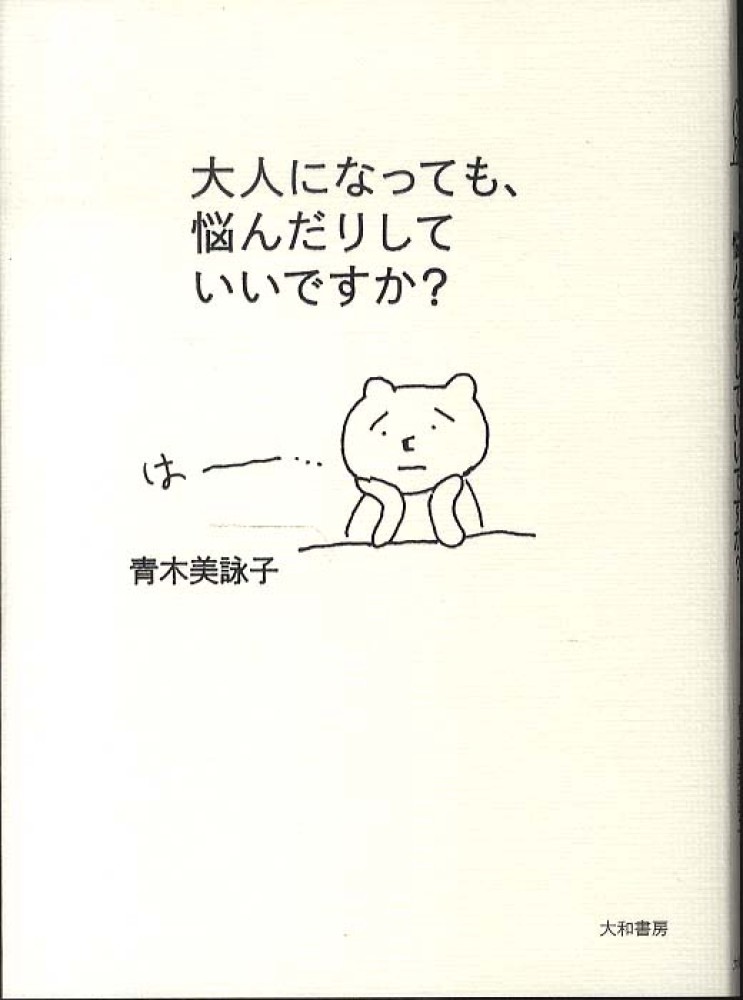 大人になっても、
悩んだりして
いいですか?
はー…
青木美詠子
大和書房